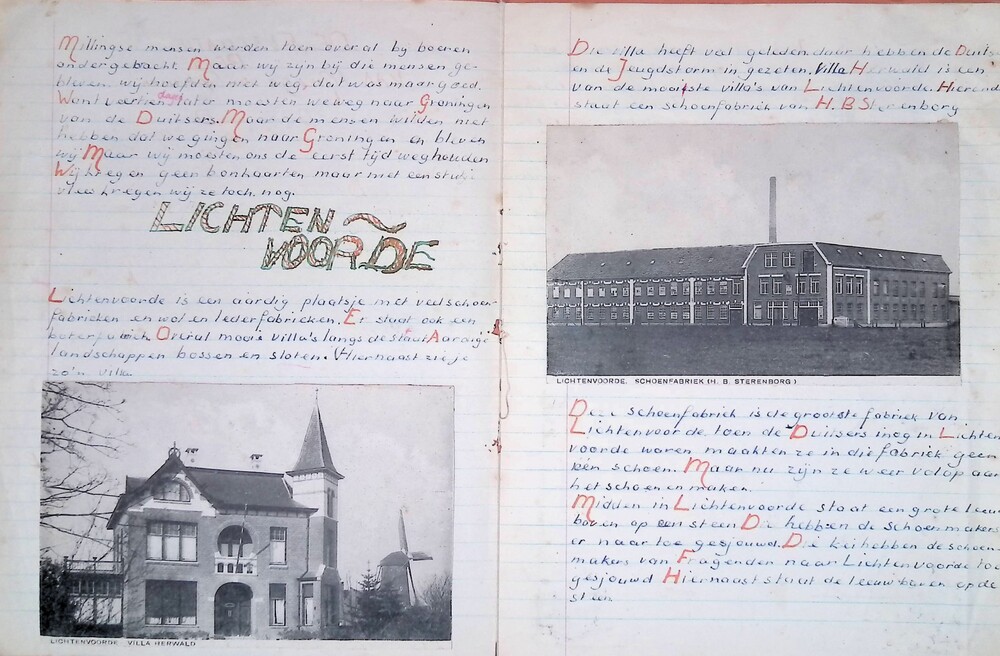 Millingse mensen werden toen overal by boeren
ondergebracht Maar wy zyn bij die mensen ge-
bleven. wij hoefden niet weg, dat was maar goed.
Want veertien dagen later moesten we weg naar Groningen
van de Duitsers. Maar de mensen wilden niet
hebben dat we gingen naar Groningen en bleven
wij Maar wij moesten ons de eerst tijd weghouden
Wij kregen geen bonkaarten maar met een stuk
vlees kregen wij ze toch nog.
LICHTEN~
VOORDE
Lichtenvoorde is een aardig plaatsje met veel schoen
fabrieken en wol en lederfabrieken. Er staat ook een
Overal mooie villa's langs de straat Aardige
landschappen bossen en sloten. Hiernaast zie je
zo'n villa
LICHTENVOORDE VILLA HERWALD
Die villa heeft veel geleden daar hebben de Duits
en de Jeugdstorm in gezeten. Villa Herwald is een
van de mooiste villa's van Lichtenvoorde. Hieronder
staat een schoenfabriek van H.B Sterenborg
LICHTENVOORDE. SCHOENFABRIEK (H. B. STERENBORG)
Deze schoenfabriek is de grootste fabriek van
Lichtenvoorde. toen de Duitsers inog in Lichten
voorde waren maakten ze in die fabriek geen
één schoen. Maar nu zijn ze weer volop aan
het schoenen maken.
Midden in Lichtenvoorde staat een grote leeuw
boven op een steen Die hebben de schoenmakers
er naar toe gesjouwd. Die kei hebben de schoen
makers van Fragenden naar Lichtenvoorde toe
gesjouwd Hiernaast staat de leeuw boven op de
steen